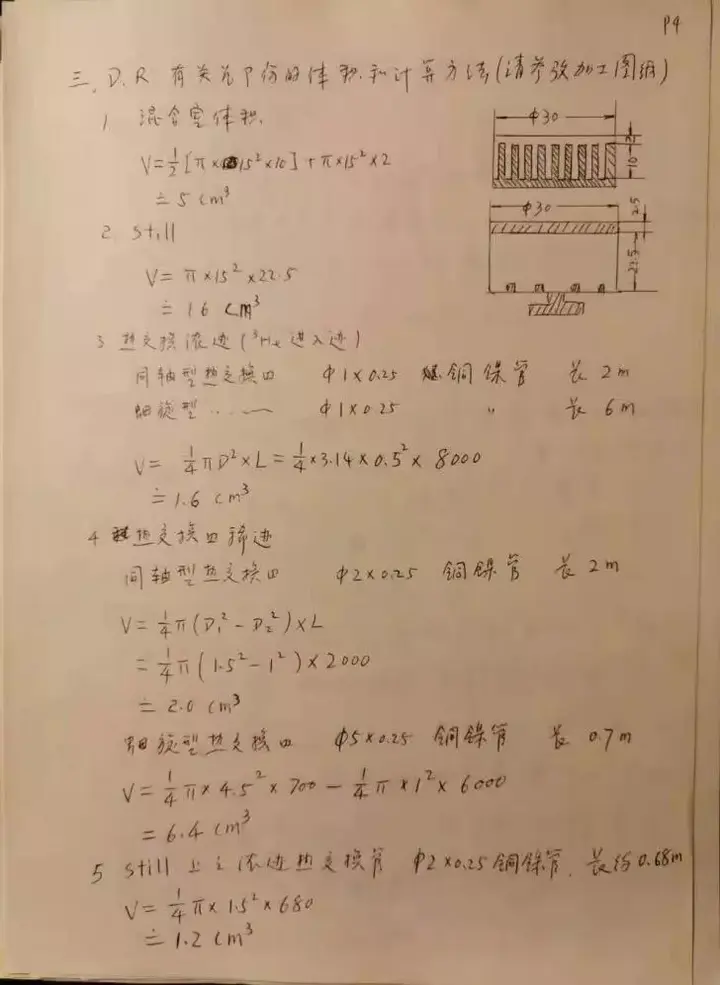 P4
三. D.R 有关各部份的体积和计算方法(请参考加工图纸)
1 混合室体积.
V=½[π×15²×10]+π×15²×2
≐ 5 cm³
Φ30
2
10
2. Still
V= π×15²×22.5
≐ 16 cm³
Φ30
2.5
22.5
3 热交换浓边(³He 进入边)
同轴型热交换口 Φ1×0.25 铜镍管 长 2m
Φ1×0.25 〃 长 6m
V= ¼πD²×L=¼×3.14×0.5²×8000
≐ 1.6 cm³
4 热交换口稀边
同轴型热交换口 Φ2×0.25 铜镍管 长 2m
V=¼π(D₁²-D₂²)×L
=¼π(1.5²-1²)×2000
≐ 2.0 cm³
旋型热交换口 Φ5×0.25 铜镍管 长 0.7m
V=¼π×4.5²×700-¼π×1²×6000
= 6.4 cm³
5 Still 上之浓边热交换管 Φ2×0.25铜镍管, 长约0.68m
V=¼π×1.5²×680
≐ 1.2 cm³